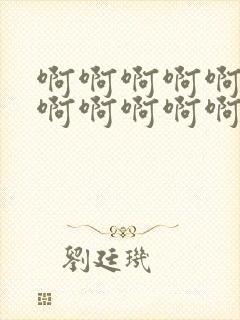 啊啊啊啊啊
啊啊啊啊啊
劉廷璣